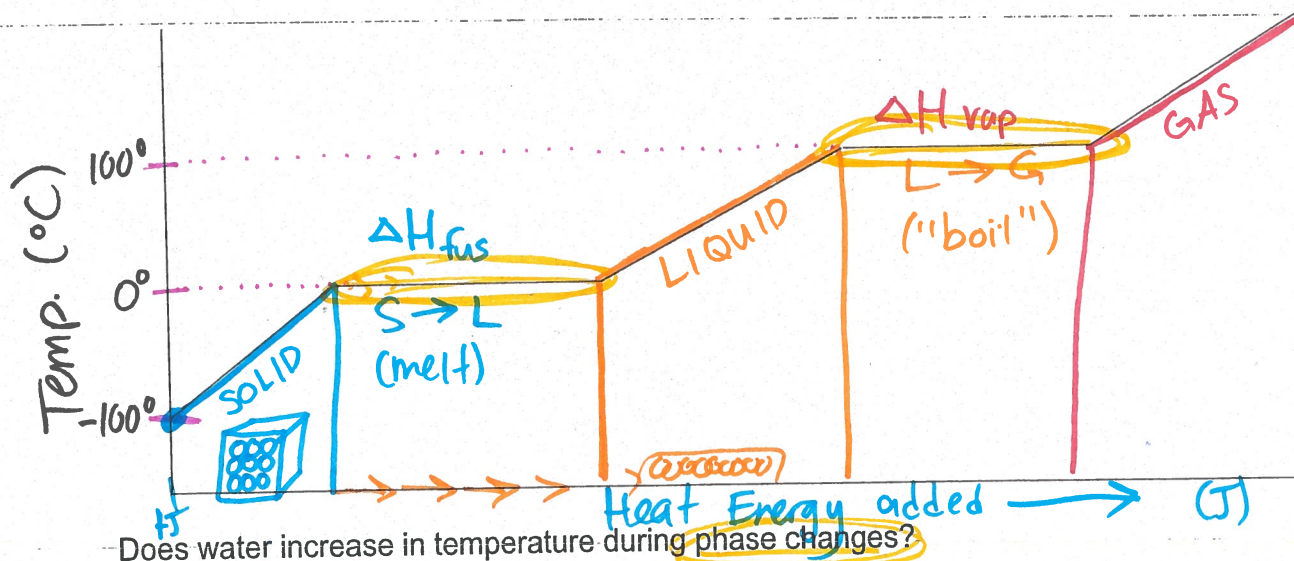 Temp. (°C)
100°
0°
-100°
SOLID
ΔHfus
S → L
(melt)
LIQUID
ΔH vap
L → G
("boil")
GAS
Heat Energy added → (J)
Does water increase in temperature during phase changes?